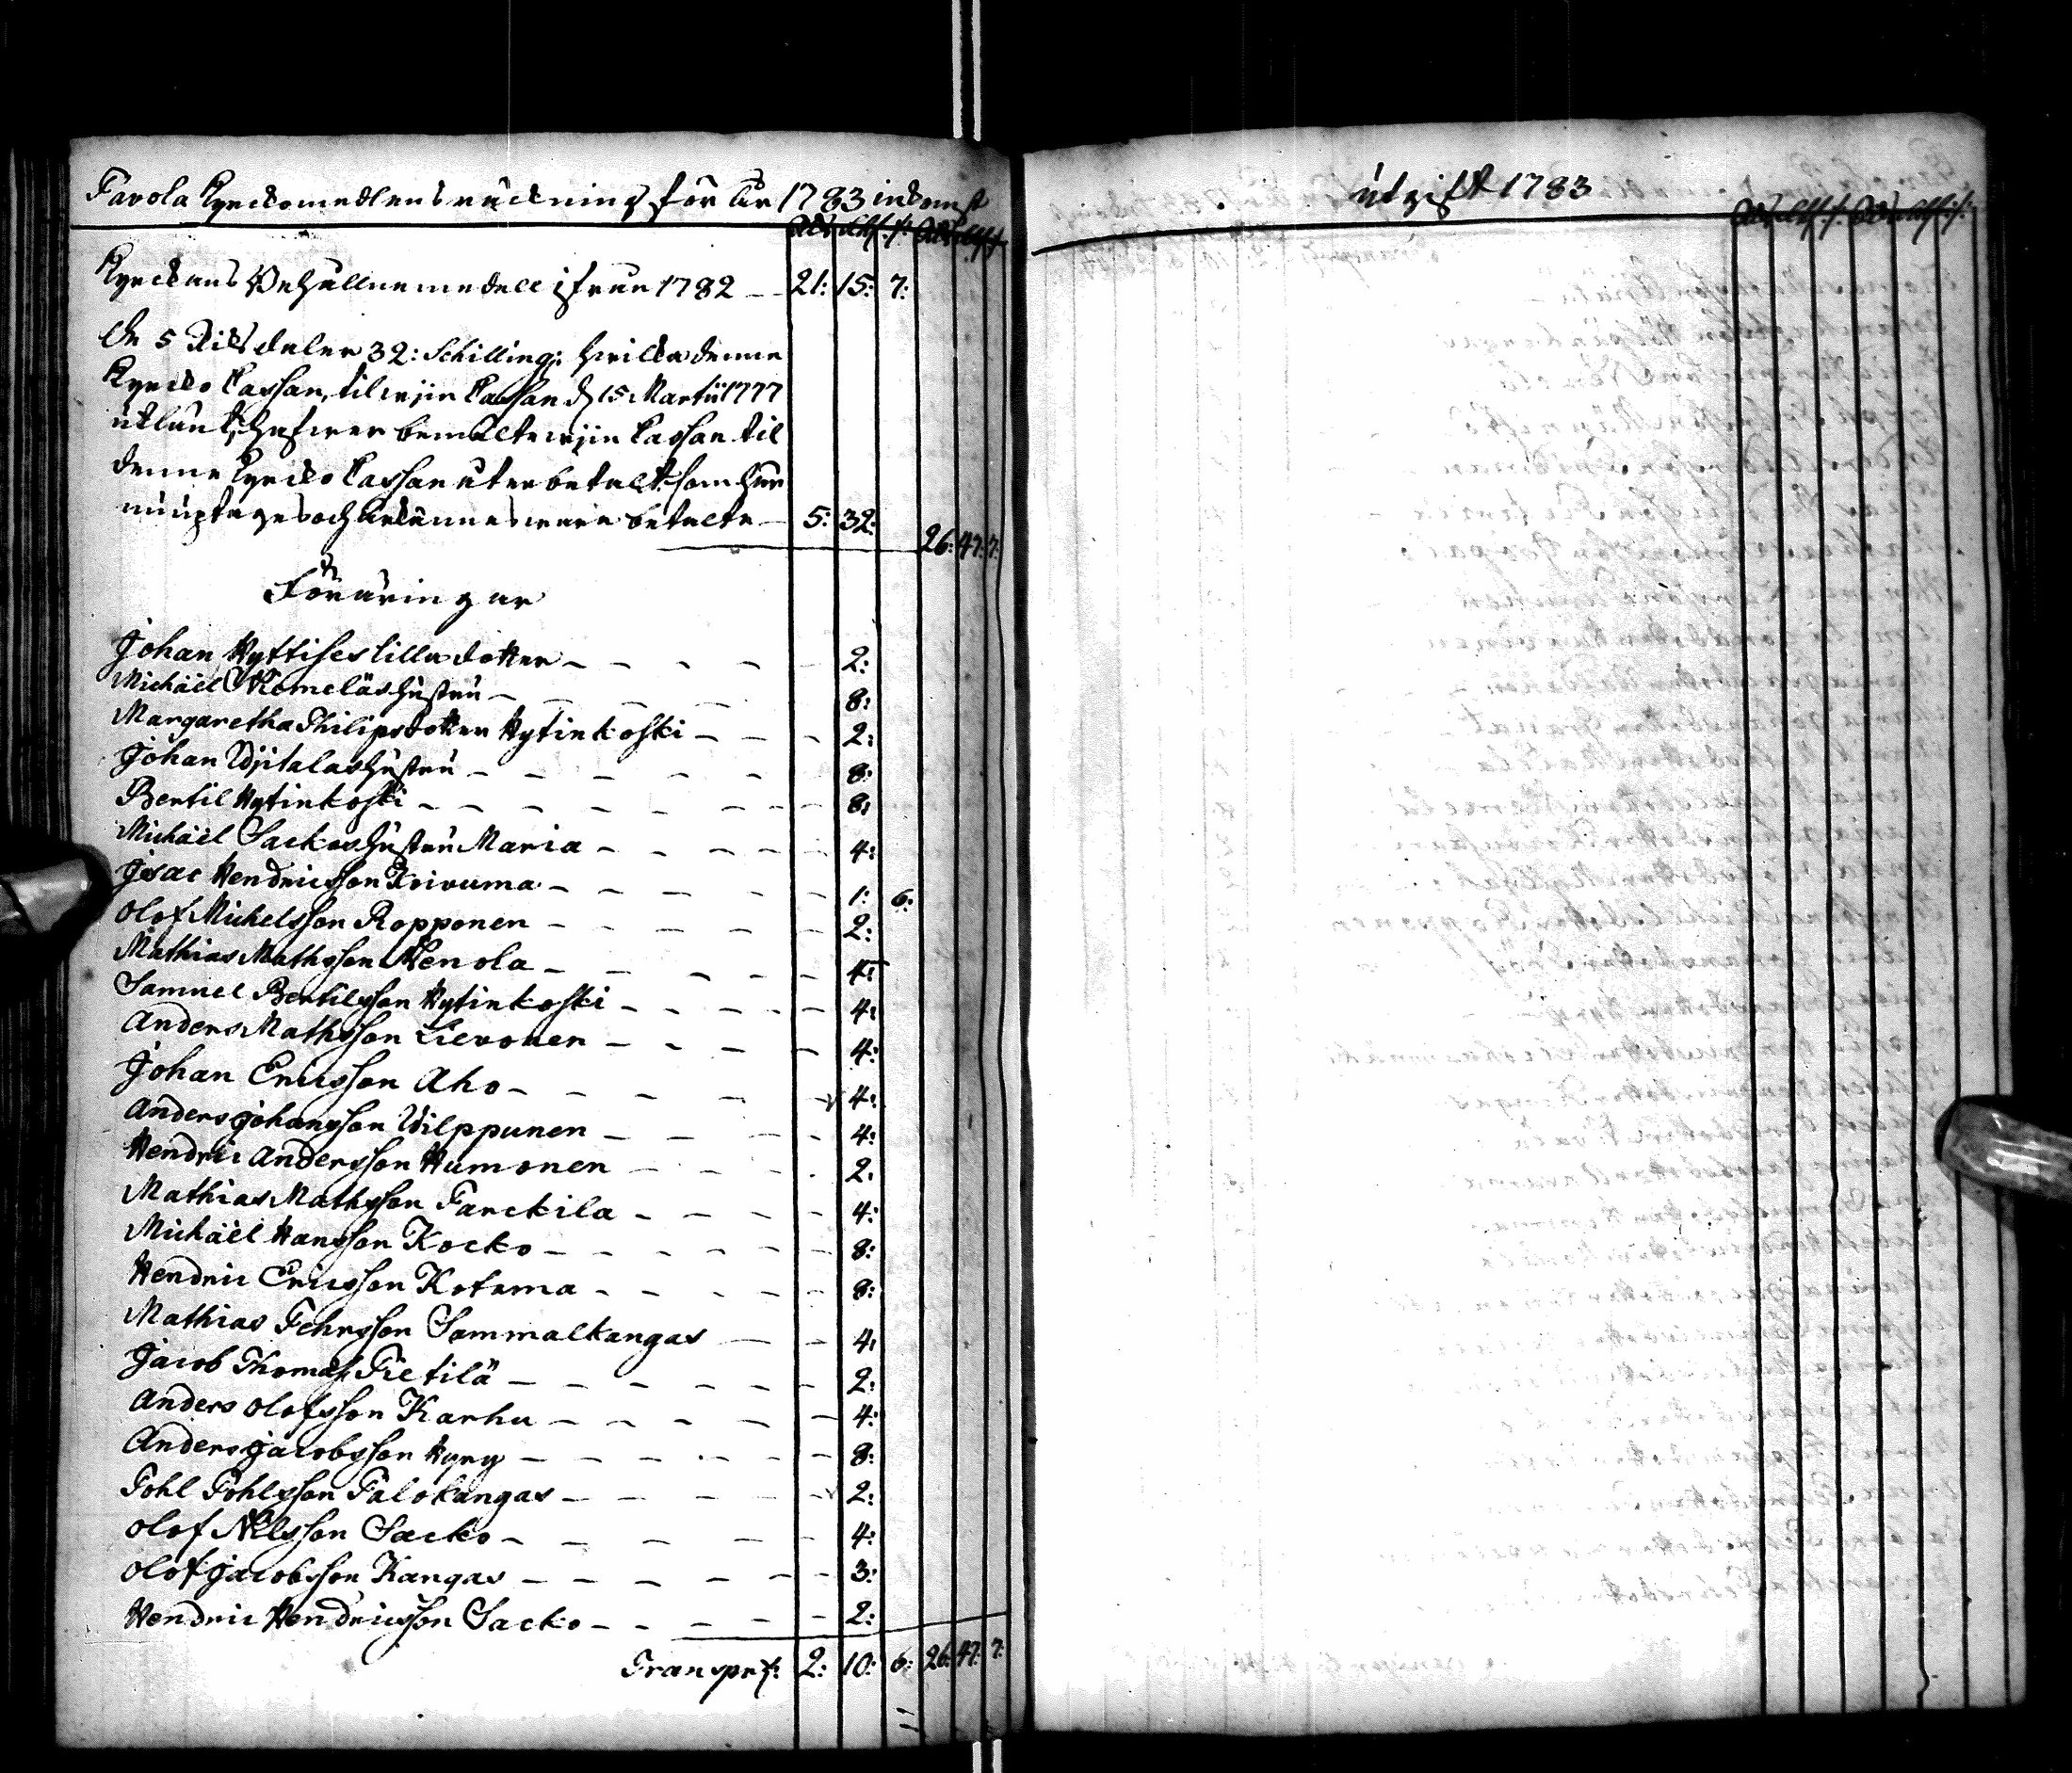 Pavola Kyrckomedlens räckning för år 1783 inkomst
Rds ss. r. Rds ss. r.
Kyrckans Behållne medell ifrån 1782 — 21: 15: 7:
De 5 Riksdaler 32: Schilling: hvilka denne
Kyrcko Cassan, til wjin Cassan d. 15 Martii 1777
utlånt, hafwer bemälte wjin Cassan til
denne Kyrcko Cassan åter betalt som här
nu uptages och erkännes vara betalte — 5: 32:
26: 47: 7:
Föräringar
Johan Hyttises lilla dotter — 2:
Michaël Komeläs hustru — 8:
Margaretha Philipsdotter Hytinkoski — 2:
Johan Wjitalas hustru — 8:
Bertil Hytinkoski — 8:
Michaël Sackos hustru Maria — 4:
Isac Hendricsson Koivuma — 1: 6:
Olof Michelsson Ropponen — 2:
Mathias Mathsson Kenola — 4:
Samuel Bertilsson Hytinkoski — 4:
Anders Mathsson Lievonen — 4:
Johan Ericsson Aho — 4:
Anders Johansson Wilppunen — 4:
Hendric Andersson Humonen — 2:
Mathias Mathsson Parckila — 4:
Michaël Hansson Kocko — 8:
Hendric Ericsson Kotema — 8:
Mathias Pehrsson Sammalkangas — 4:
Jacob Thomas. Pietilä — 2:
Anders Olofsson Karhu — 4:
Anders Jacobsson Hyry — 8:
Pohl Pohlsson Palokangas — 2:
Olof Nilsson Sacko — 4:
Olof Jacobsson Kangas — 3:
Hendric Hendricsson Sacko — 2:
Transport: 2: 10: 6: 26: 47: 7:
Utgift 1783
Rds ss. r. Rds ss. r.